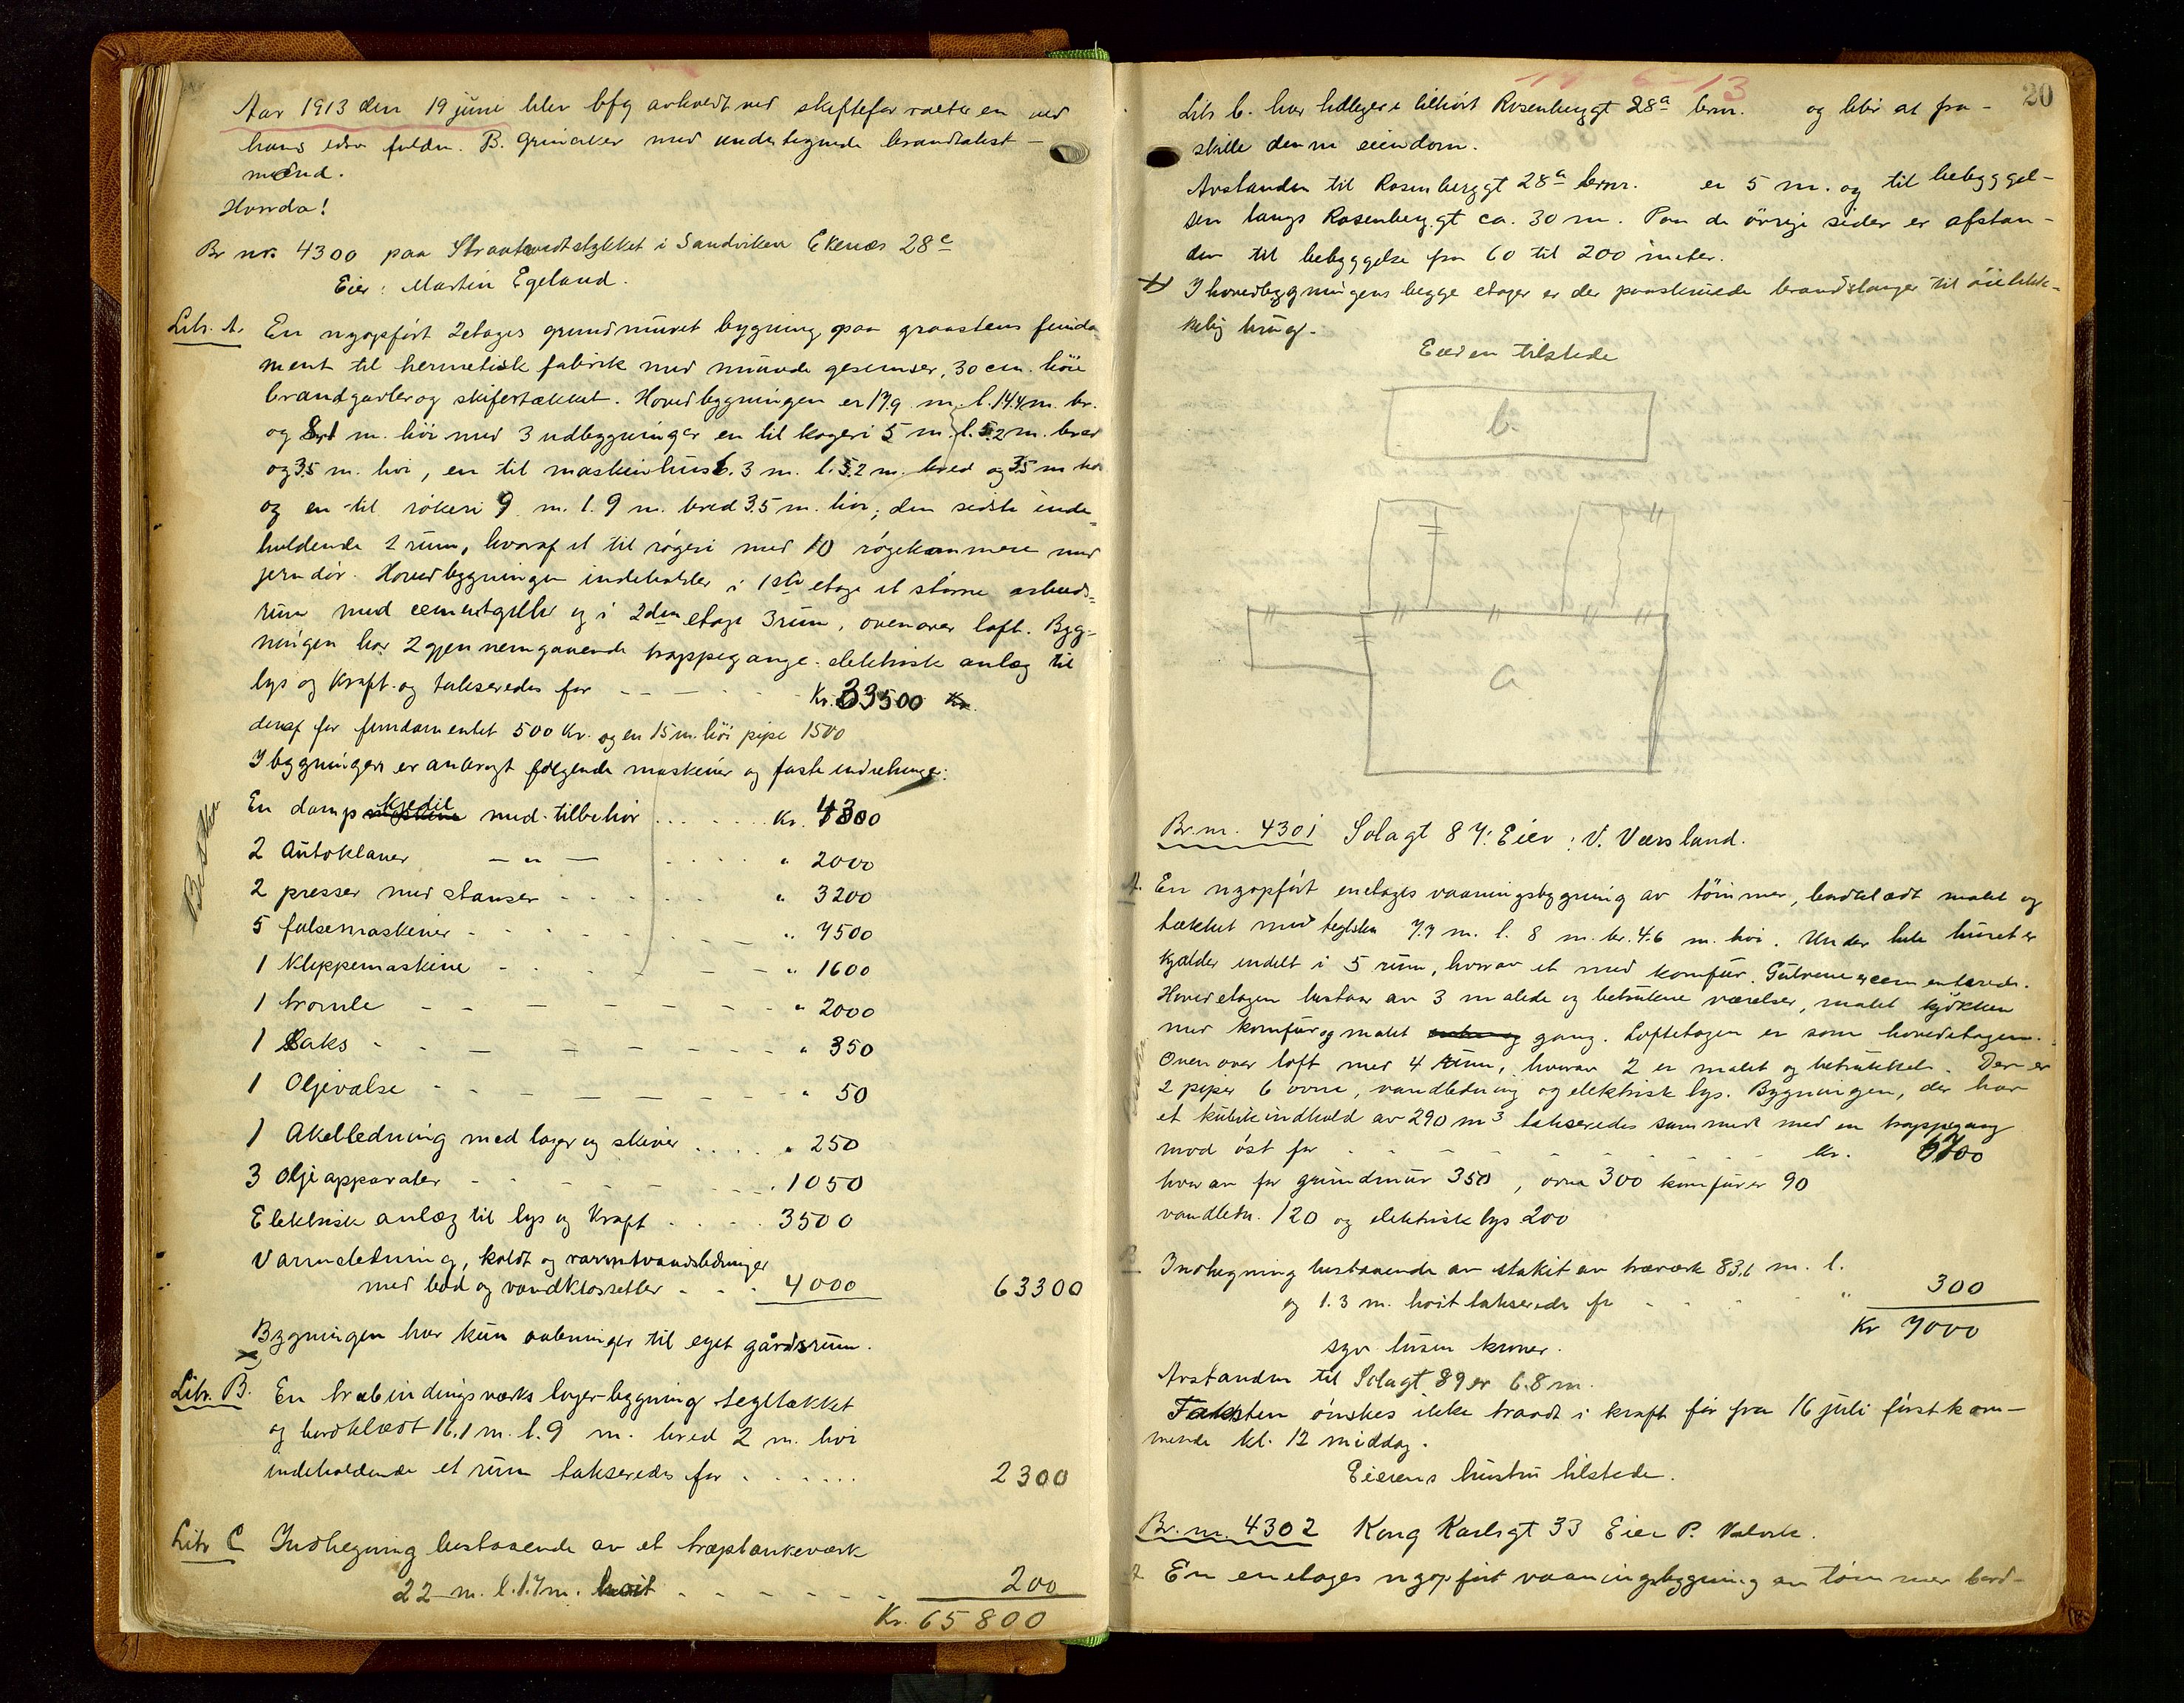 Aar 1913 den 19 juni blev bfg avholdt ved skifteforvalteren ved
hans edsv. fuldm. B. Grinaker med undertegnede brandtakst-
mænd.
Hvorda!
Br nr. 4300 paa Straatvedtstykket i Sandviken Ekenæs 28c
Eier: Martin Egeland.
Litr. A. En nyopført 2etages grundmuret bygning paa graastens funda-
ment til hermetisk fabrik med murede gesimser, 30 cm. höie
brandgavler og skifertækket. Hovedbygningen er 17.9 m. l. 14.4 m. br.
og 8.1 m. höi med 3 udbygninger en til kogeri 5 m. l. 5.2 m. bred
og 3.5 m. höi, en til maskinhus 6.3 m. l. 5.2 m. bred og 3.5 m hö
og en til rökeri 9 m. l. 9 m. bred 3.5 m. höi; den sidste inde-
holdende 2 rum, hvoraf et til rögeri med 10 rögekammere med
jerndör. Hovedbygningen indeholder i 1ste etage et större arbeids-
rum med cementgulv og i 2den etage 3 rum, ovenover loft. Byg-
ningen har 2 gjennemgaaende trappegange. elektrisk anlæg til
lys og kraft og takseredes for - - - Kr. 33500 Kr.
deraf for fundamentet 500 Kr. og en 15 m. höi pipe 1500
I bygningen er anbragt følgende maskiner og faste indretninger:
En damp maskine kjedel med tilbehör . . . . . Kr. 4300
2 Autoklaver — " — . . . . " 2000
2 presser med stanser - - - . . " 3200
5 falsemaskiner - - - - - " 7500
1 Klippemaskine - - - - - " 1600
1 tromle - - - - - - - " 2000
1 Saks - - - - - - - " 350
1 Oljevalse - - - - - - - " 50
1 Akselledning med lager og skiver . . . . " 250
3 Oljeapparater - - - - - " 1050
Elektrisk anlæg til lys og kraft . . . . 3500
Varmeledning, koldt og varmtvandsledninger
med bad og vandklossetter . . . 4000 63300
Bygningen har kun aabninger til eget gårdsrum.
x
Litr. B. En træbindingsværks lager-bygning tegltækket
og bordklædt 16.1 m. l. 9 m. bred 2 m. höi
indeholdende et rum takseredes for . . . . . . 2300
Litr C Indhegning bestaaende av et træplankeværk
22 m. l. 1.7 m. höit - - - - - - 200
Kr. 65800
20
19-6-13
Litr b. har tidligere tilhört Rosenberggt 28a brnr. og blir at fra-
skille denne eiendom.
Avstanden til Rosenberggt 28a brnr. er 5 m. og til bebyggel-
sen langs Rosenberg.gt ca. 30 m. Paa de övrige sider er afstan-
den til bebyggelse fra 60 til 200 meter.
x I hovedbygningens begge etager er der paaskruede brandslanger til öieblik-
kelig brug.
Eieren tilstede
b.
a
Br. nr. 4301 Solagt 87. Eier: V. Værsland.
A. En nyopført enetages vaaningsbygning av tömmer, bordklædt malet og
tækket med teglsten 7.7 m. l. 8 m. br. 4.6 m. höi. Under hele huset er
kjælder indelt i 5 rum, hvorav et med komfur. Gulvene er cementerede.
Hovedetagen bestaar av 3 malede og betrukne værelser, malet kjökken
med komfur og malet gang. Loftetagen er som hovedetagen.
Ovenover loft med 4 rum, hvorav 2 er malet og betrukket. Der er
2 piper 6 ovne, vandledning og elektrisk lys. Bygningen, der har
et kubikindhold av 290 m3 takseredes sammen med en trappegang
mod öst for - - - - - - - kr. 6700
hvorav for grundmur 350, ovne 300 komfurer 90
vandledn. 120 og elektrisk lys 200
B Indhegning bestaaende av stakit av træverk 83.6 m. l.
og 1.3 m. höit takseredes for - - - - " 300
Kr 7000
syv tusen kroner.
Avstanden til Solagt. 89 er 6.8 m.
Taksten önskes ikke traadt i kraft för fra 16 juli förstkom-
mende kl. 12 middag.
Eierens hustru tilstede.
Br. nr. 4302 Kong Karlsgt 33 Eier P.
A En enetages nyopfört vaaningsbygning av tömmer bord-